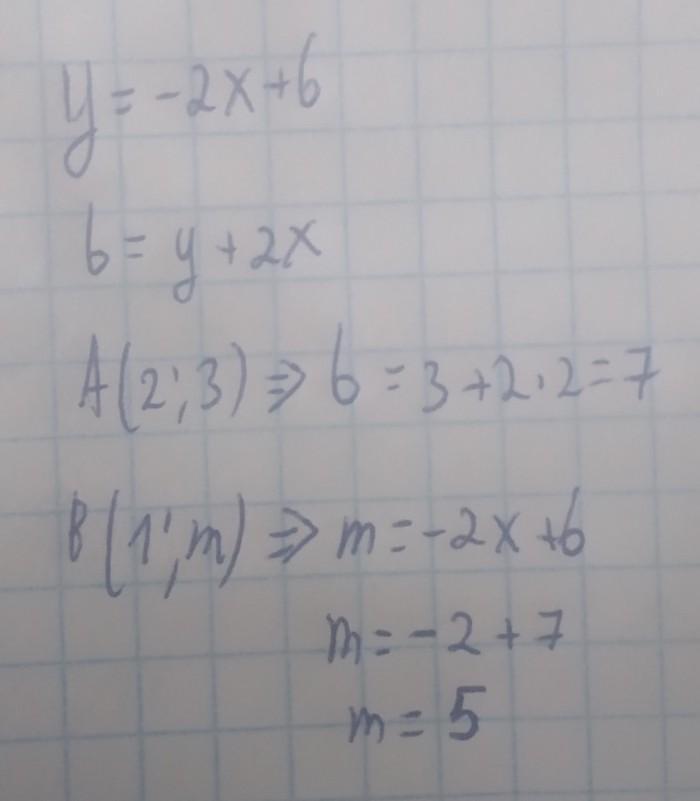 y = -2x + b
b = y + 2x
A(2; 3) ⇒ b = 3 + 2 · 2 = 7
B(1; m) ⇒ m = -2x + b
m = -2 + 7
m = 5